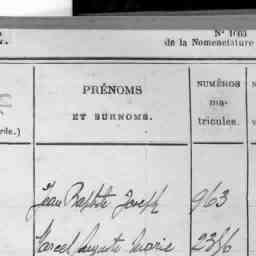 N° 1063
de la Nomenclature
PRÉNOMS
ET SURNOMS.
NUMÉROS
ma-
tricules.
Jean Baptiste Joseph 963
Marcel Auguste Marie